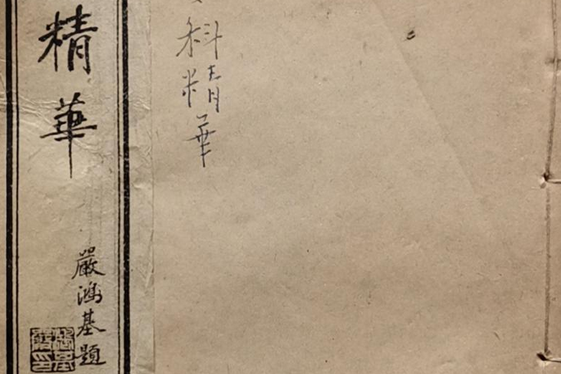 精華
嚴鴻基題
科精華